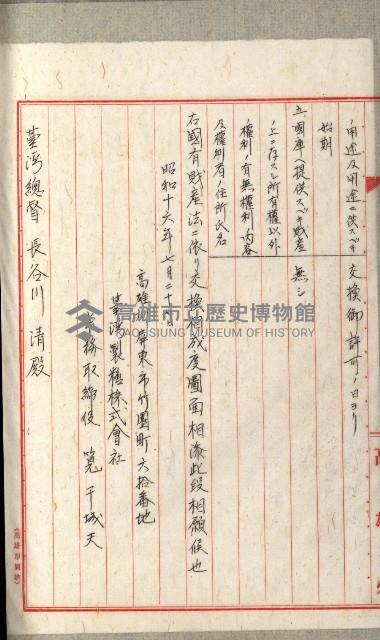 、用途及用途ニ供スベキ
始期
交換御許可ノ日ヨリ
五、國庫ヘ提供スベキ財産
ノ上ニ存スル所有權以外
ノ權利ノ有無權利ノ内容
及權利者ノ住所氏名
無シ
右國有財産法ニ依リ交換相成度圖面相添此段相願候也
昭和十六年七月二十
高雄 屏東市竹園町六拾番地
臺灣製糖株式會社
務取締役 筧干城夫
臺灣總督 長谷川 清殿
高雄市立歷史博物館
KAOHSIUNG MUSEUM OF HISTORY